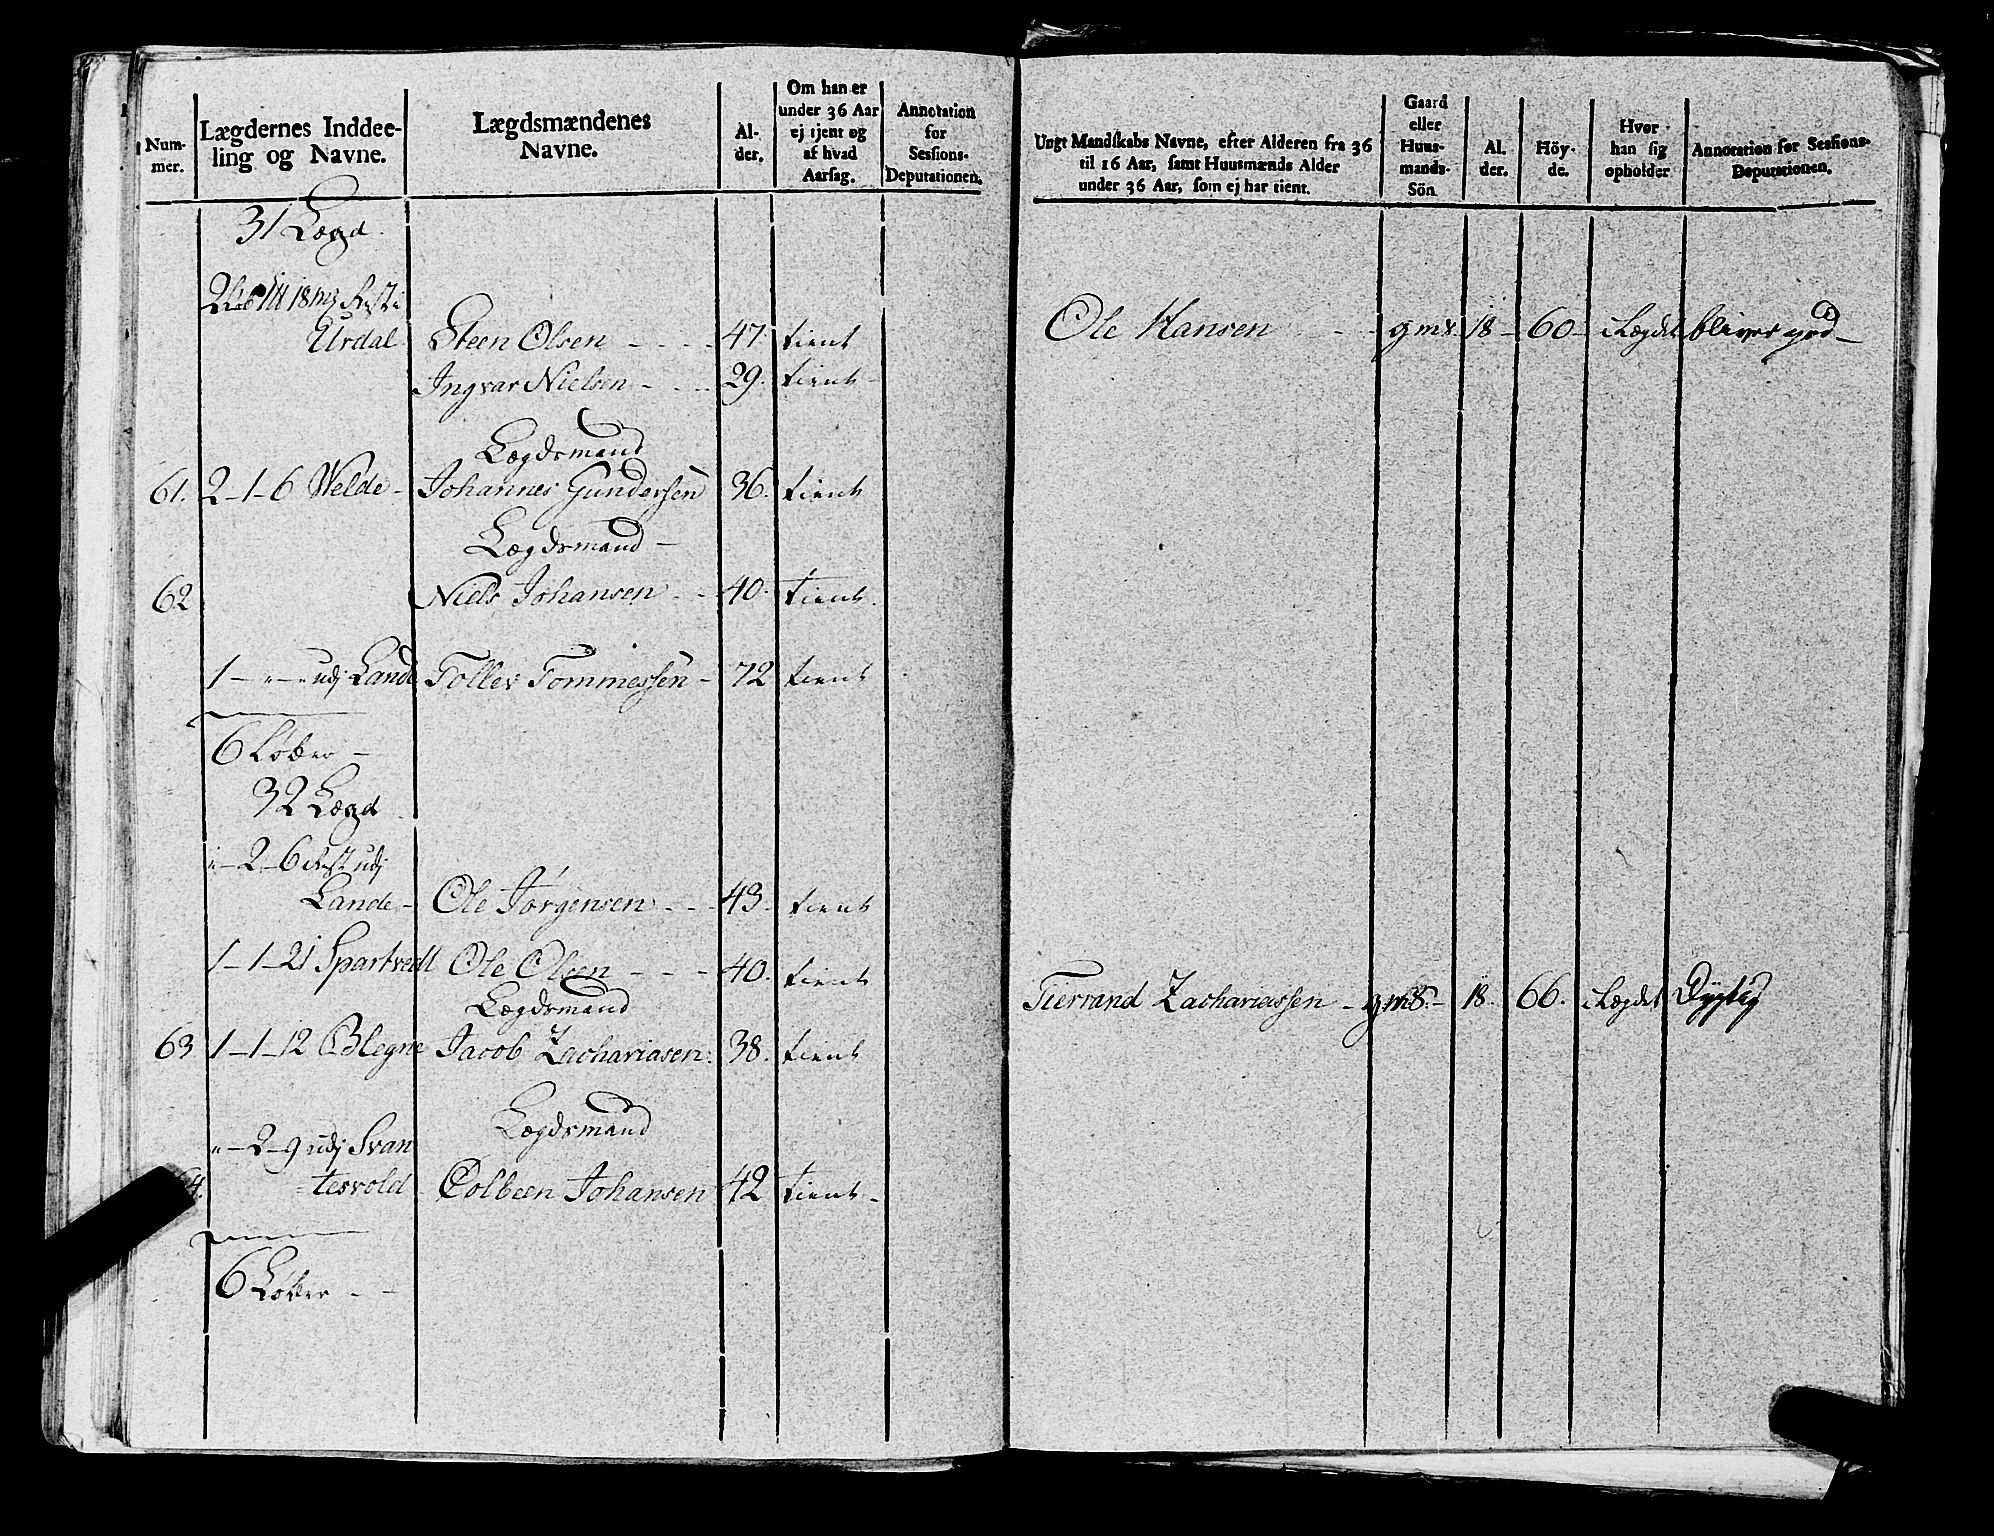 Num-
mer.
Lægdernes Inddee-
ling og Navne.
Lægdsmændenes
Navne.
Al-
der.
Om han er
under 36 Aar
ej tjent og
af hvad
Aarsag.
Annotation
for
Sessions-
Deputationen.
31 Lægd
Urdal Steen Olsen - - - - 47. tient
Ingvar Nielsen - - - 29. tient -
Lægdsmand
61. 2-1-6 Welde - Johannes Gundersen 36. tient
Lægdsmand -
62 Niels Johansen - - 40. tient.
1 - " - " udj Lande Tollev Tommessen - 72 tient
6 Løber -
32 Lægd
" - 2 - 6 Rest udj
Lande - Ole Jørgensen - - - 43. tient
1 - 1 - 21 Spartvedt Ole Olsen - - - 40. tient
Lægdsmand
63 1 - 1 - 12 Blegne Jacob Zachariasen. 38. tient
Lægdsmand
" - 2 - 9 udj Svan
64. tesvold Colbeen Johansen 42 tient -
6 Løber - -
Ungt Mandskabs Navne, efter Alderen fra 36
til 16 Aar, samt Huusmænds Alder
under 36 Aar, som ej har tient.
Gaard
eller
Huus-
mands-
Sön.
Al.
der.
Höy-
de.
Hvor
han sig
opholder
Annotation for Sessions-
Deputationen.
Ole Hansen - - - gms. 18 - 60 - i Lægdet bliver god -
Tierrand Zachariassen - gms. - 18. 66. i Lægdet Dygtig